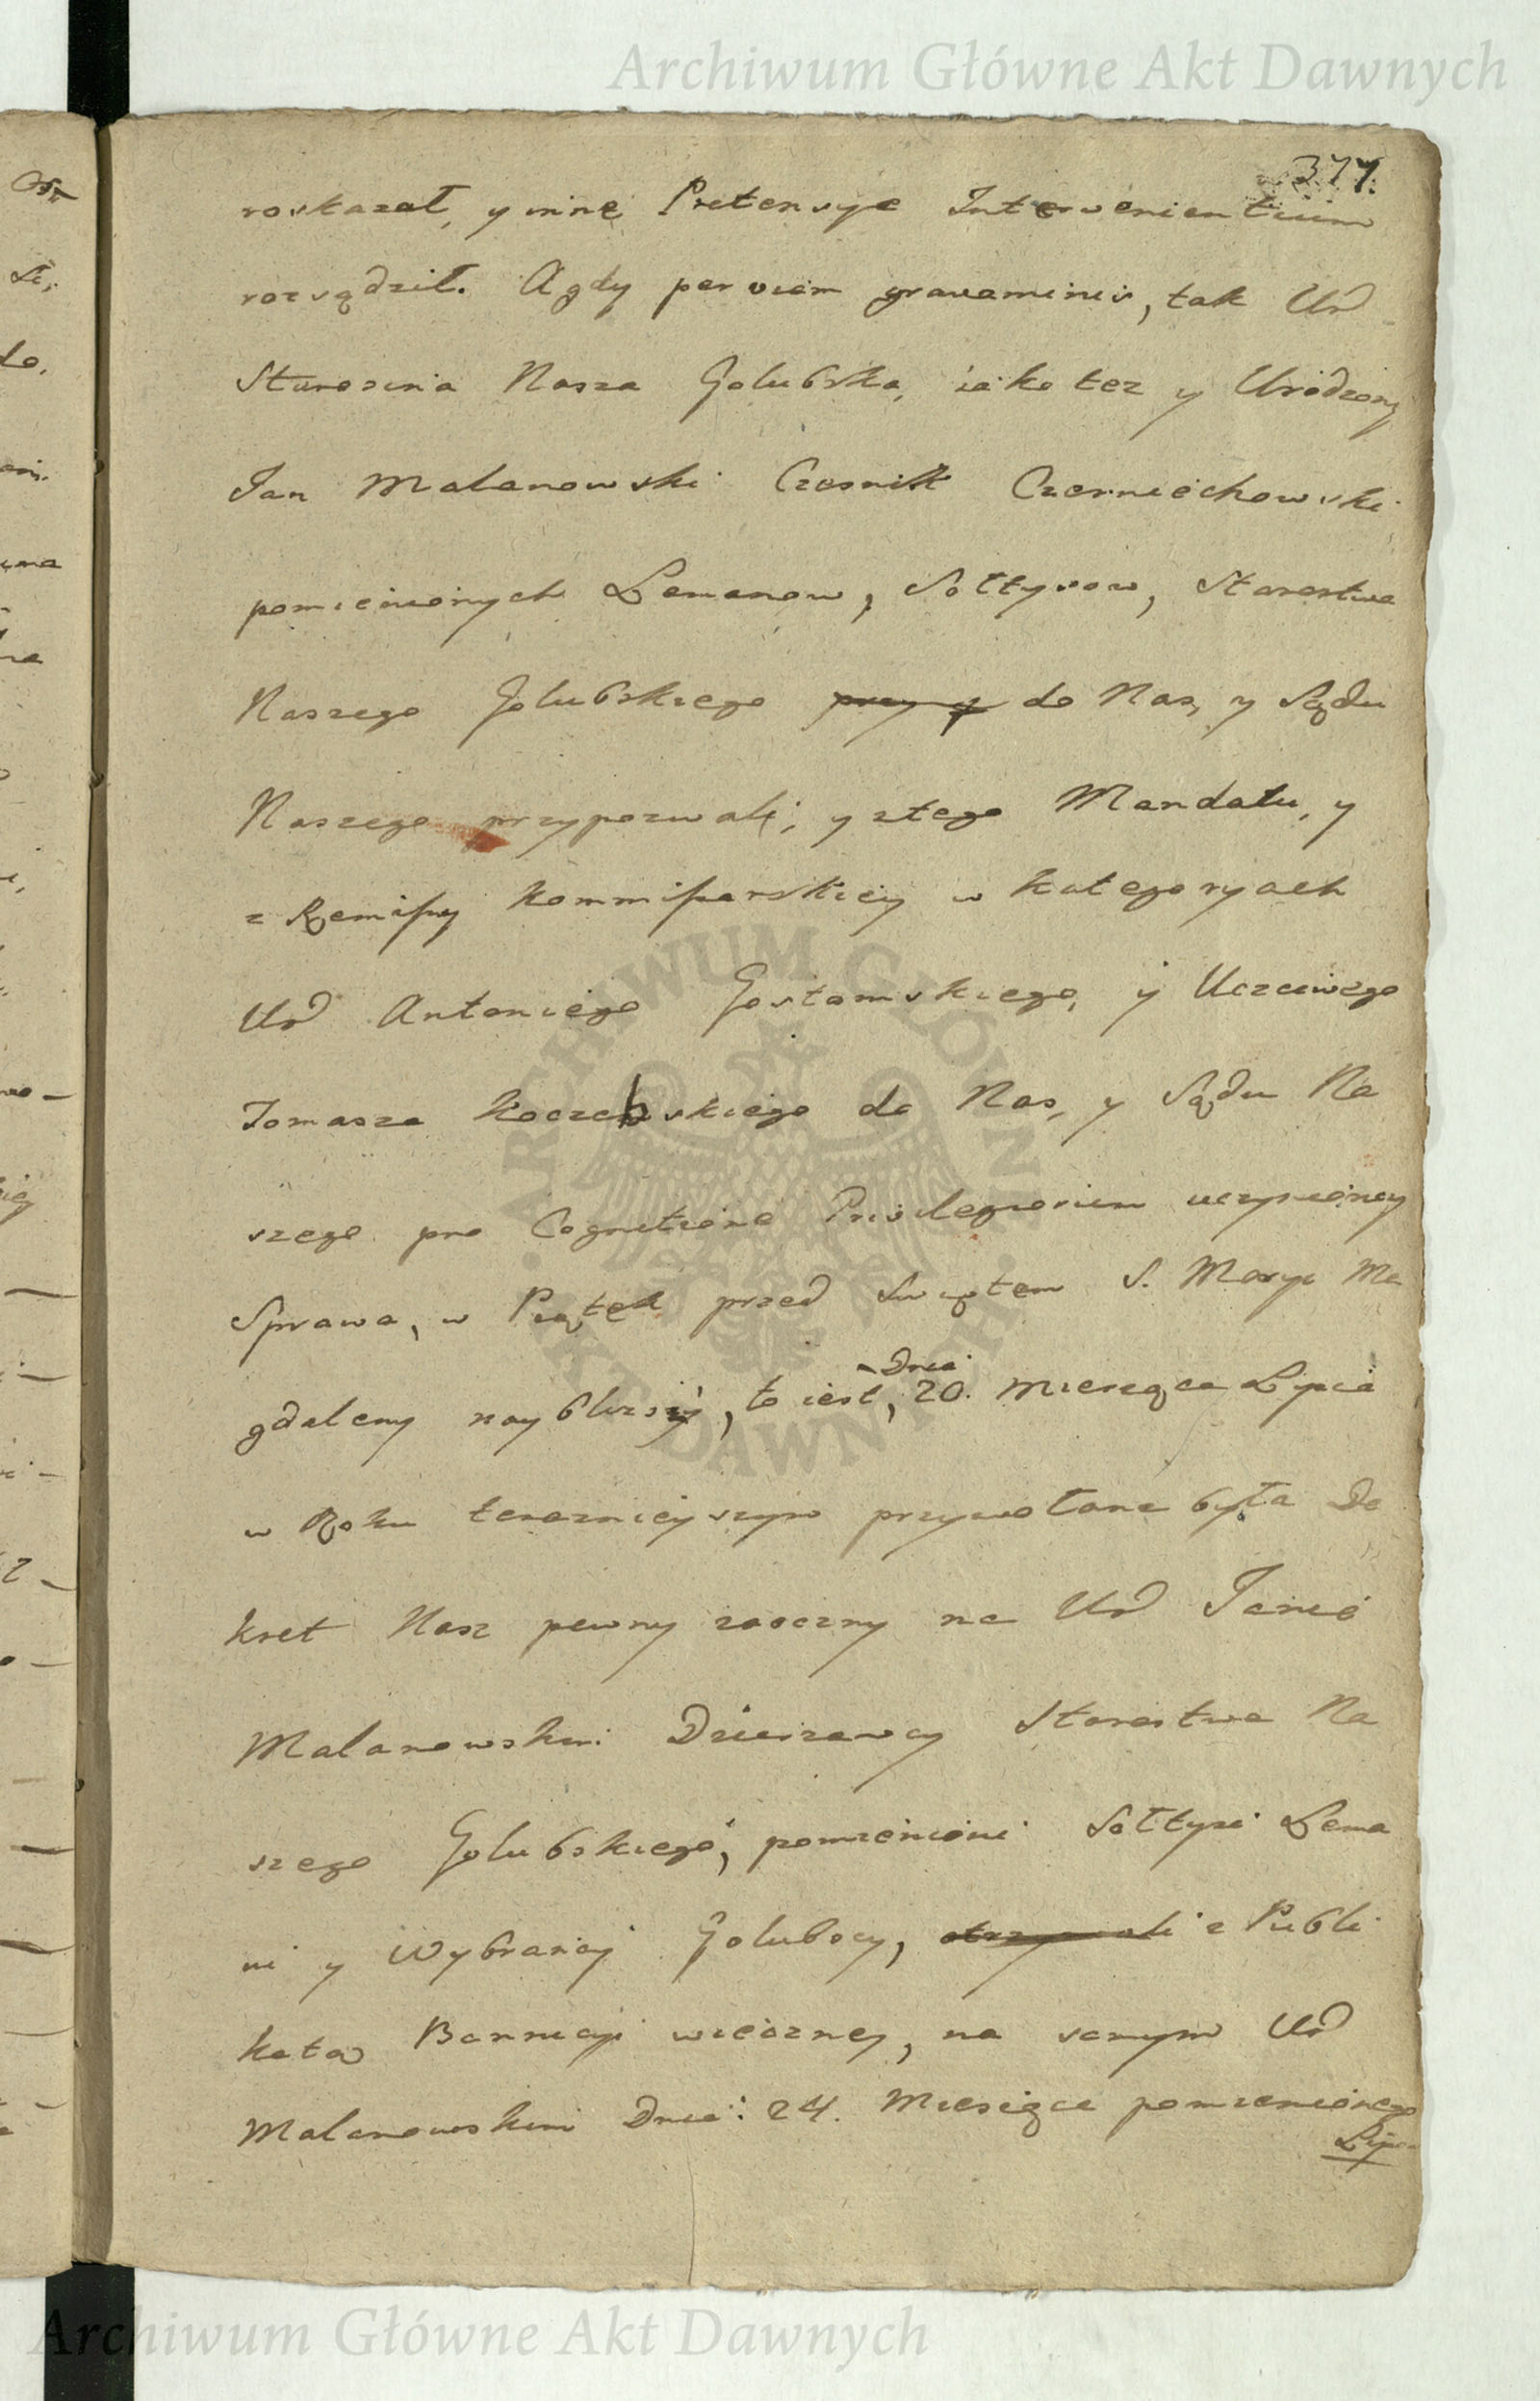 Archiwum Główne Akt Dawnych
377.
roskazał, y inne Pretensye Intervenientium
rozsądził. A gdy per viam gravaminis, tak Ur
Starościna Nasza Golubska, iako tez y Urodzony
Jan Malanowski Czesnik Czerniechowski
pomienionych Lemanow, Sołtysow, Starostwa
Naszego Golubskiego do Nas, y Sądu
Naszego przypozwali; y ztego Mandatu, y
z Remissy Kommissarskiey w Kategoryach
Ur Antoniego Gostomskiego, y Uczciwego
Tomasza do Nas, y Sądu Na
szego pro Cognitione Privilegiorum uczynioney
Sprawa, w Piątek przed Swiętem S. Maryi Ma
gdaleny nayblizszy, to iest, Dnia 20. Miesiąca Lipca
w Roku teraznieyszym przywołana była De
kret Nasz pewny zaoczny na Ur Janie
Malanowskim Dzierzawcy Starostwa Na
szego Golubskiego, pomienieni Sołtysi Lema
ni y Wybrancy Golubscy, z Publi
katą Bannicyi wieczney, na samym Ur
Malanowskim Dnia: 24. Miesiąca pomienionego
Lipca
ARCHIWUM GŁÓWNE AKT DAWNYCH
Archiwum Główne Akt Dawnych